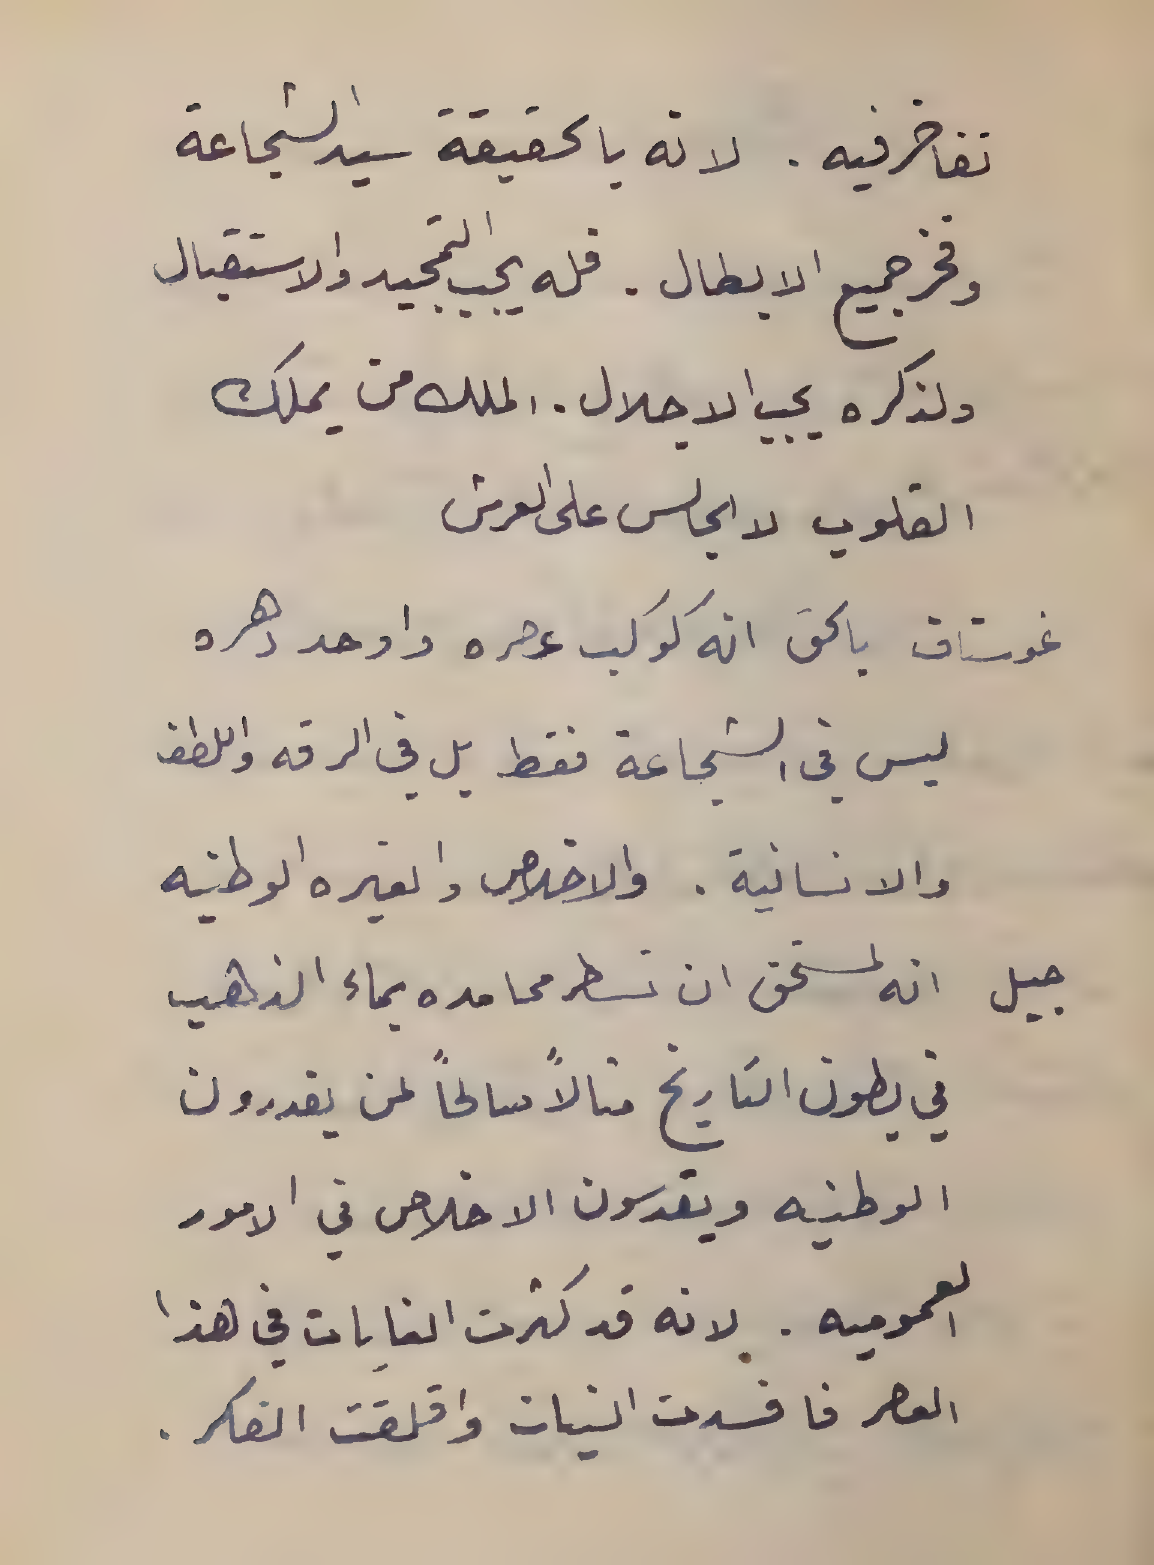 تفاخر فيه . لانه بالحقيقة سيد الشجاعة
وفخر جميع الابطال . فله يجب التمجيد والاستقبال
ولذكره يجب الاجلال . الملك من يملك
القلوب لا الجالس على العرش
غوستاف بالحق انه كوكب عصره واوحد دهره
ليس في الشجاعة فقط بل في الرقه واللطف
والانسانية . والاخلاص والغيره الوطنيه
جيل انه لمستحق ان تسطر محامده بماء الذهب
في بطون التاريخ مثالاً صالحاً لمن يقدرون
الوطنيه ويقدسون الاخلاص في الامور
العموميه . لانه قد كثرت الغايات في هذا
العصر فافسدت النيات واقلقت الفكر .